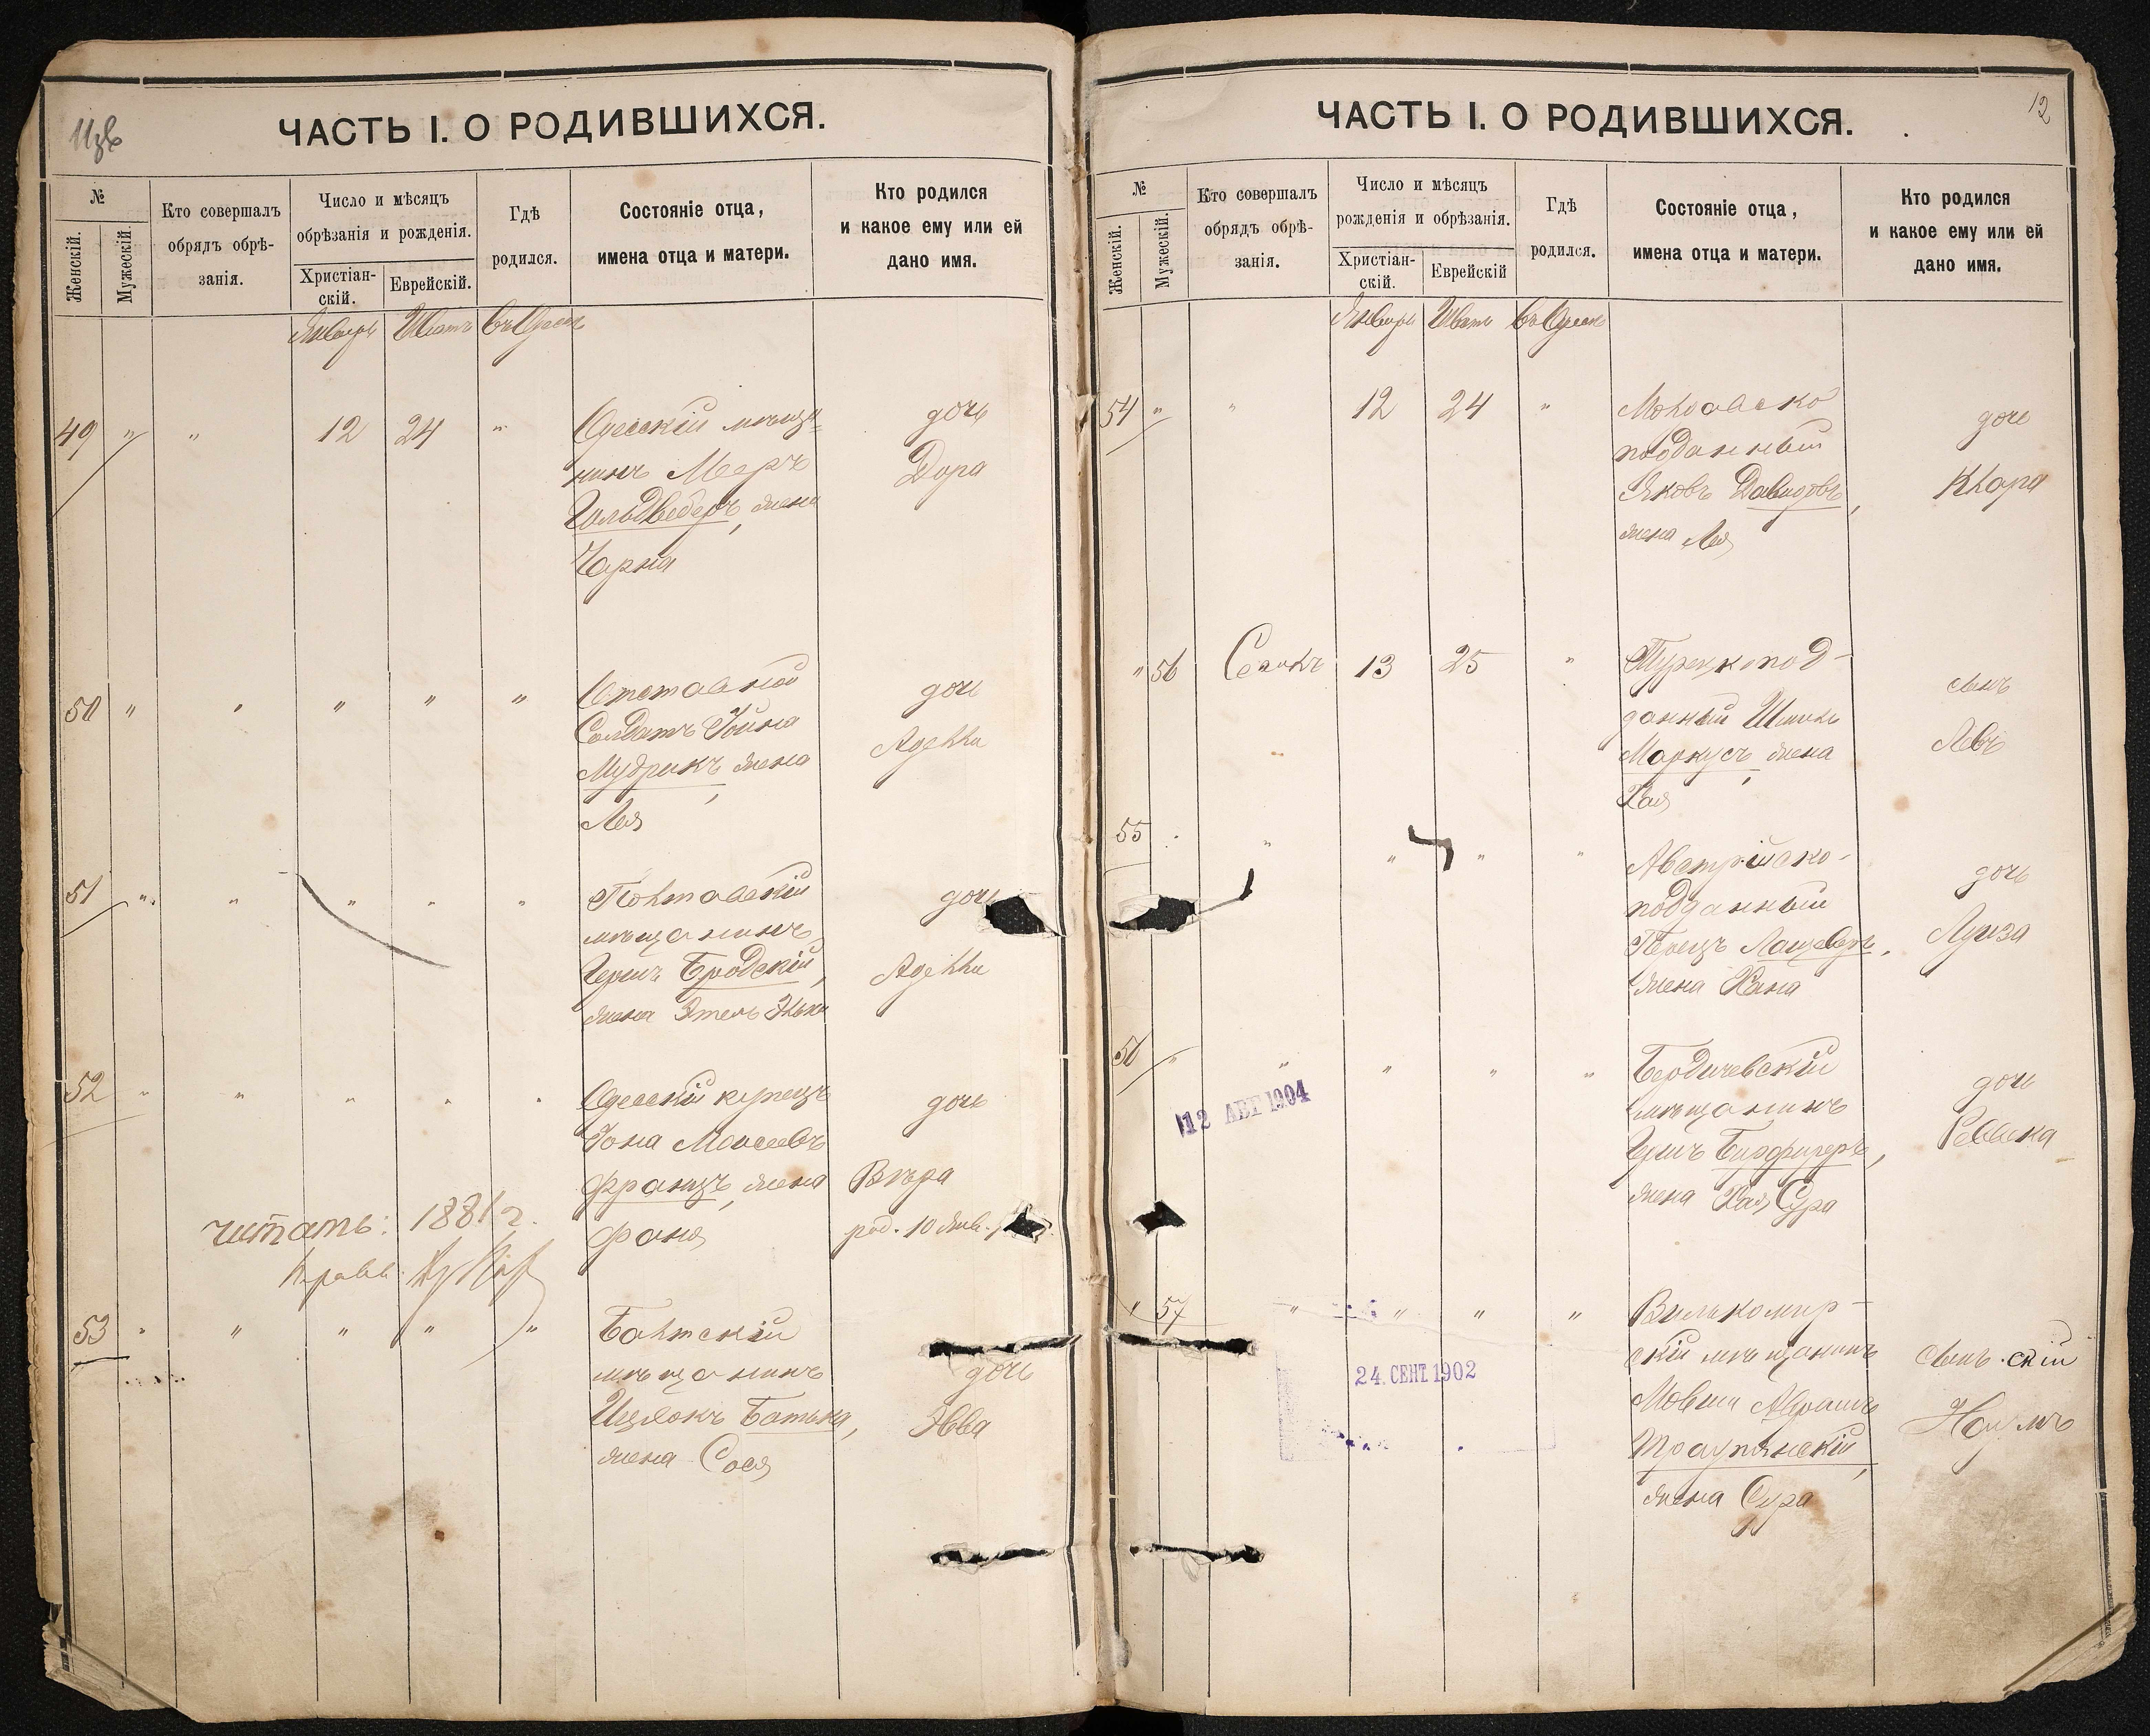 11зв
ЧАСТЬ I. О РОДИВШИХСЯ.
№
Женскій.
Мужескій.
Кто совершалъ
обрядъ обрѣ-
занія.
Число и мѣсяцъ
обрѣзанія и рожденія.
Христіан-
скій.
Еврейскій.
Гдѣ
родился.
Состояніе отца,
имена отца и матери.
Кто родился
и какое ему или ей
дано имя.
Январь Шватъ въ Одессѣ
49 " " 12 24 "
Одесскій мѣща-
нинъ Меръ
Гольдведеръ, жена
Чарна
дочь
Дора
50 " " " " "
Отставной
Солдатъ Іойна
Мудрикъ, жена
Лея
дочь
Адель
51 " " " " "
Полтавскій
мѣщанинъ
Гершъ Бродскій,
жена Этель Элька
дочь
Адель
52 " " " " "
Одесскій купецъ
Іона Моисеевъ
Францъ, жена
Фаня
дочь
Вѣра
род. 10 Янв.
читать: 1881 г.
53 " " " " "
Балтскій
мѣщанинъ
Ицхокъ Батька,
жена Сося
дочь
Эвва
12
ЧАСТЬ I. О РОДИВШИХСЯ.
№
Женскій.
Мужескій.
Кто совершалъ
обрядъ обрѣ-
занія.
Число и мѣсяцъ
рожденія и обрѣзанія.
Христіан-
скій.
Еврейскій
Гдѣ
родился.
Состояніе отца,
имена отца и матери.
Кто родился
и какое ему или ей
дано имя.
Январь Шватъ въ Одессѣ
54 " " 12 24 "
Молдавско
подданный
Яковъ Давидовъ,
жена Лея
дочь
Клара
" 56 13 25 "
Турецкопод-
данный Шмиль
Маркусъ, жена
Хая
сынъ
Левъ
55 " " " " "
Австрійско-
подданный
Перецъ Лащеверъ,
жена Хана
дочь
Луиза
56 " " " " "
Бердичевскій
мѣщанинъ
Гершъ
жена Хая Сура
дочь
Ревека
12 АВГ 1904
" 57 " " " "
Вилькомир-
скій мѣщанинъ
Мовша Абрамъ
Траупянскій,
жена Сура
сынъ
Наумъ
24. СЕНТ. 1902